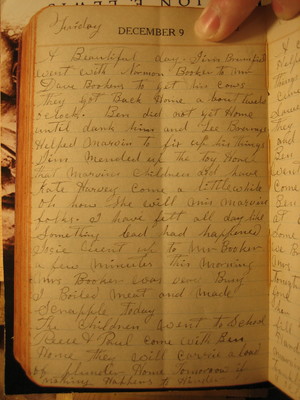 Friday
DECEMBER 9
A Beautiful day.
went with Norman Booker to Mr
Dave Bookers to get his cows
they got Back Home about twelve
oclock. Ben did not get Home
until dark him and Lee
Helped Marvin to fix up his things
Mended up the toy Home
that Marvins Children did have
Kate Harvey come a little while
Oh how She will miss Marvins
folks. I have felt all day like
Something bad had happened
went up to Mr Booker
a few minutes this morning
Mrs Booker was very Busy
I Boiled Meat and made
Scrapple today
The Children went to School
Reece & Paul come with Ben
Home they will carrie a load
of plunder Home tomorrow if
nothing Happens to Hinder